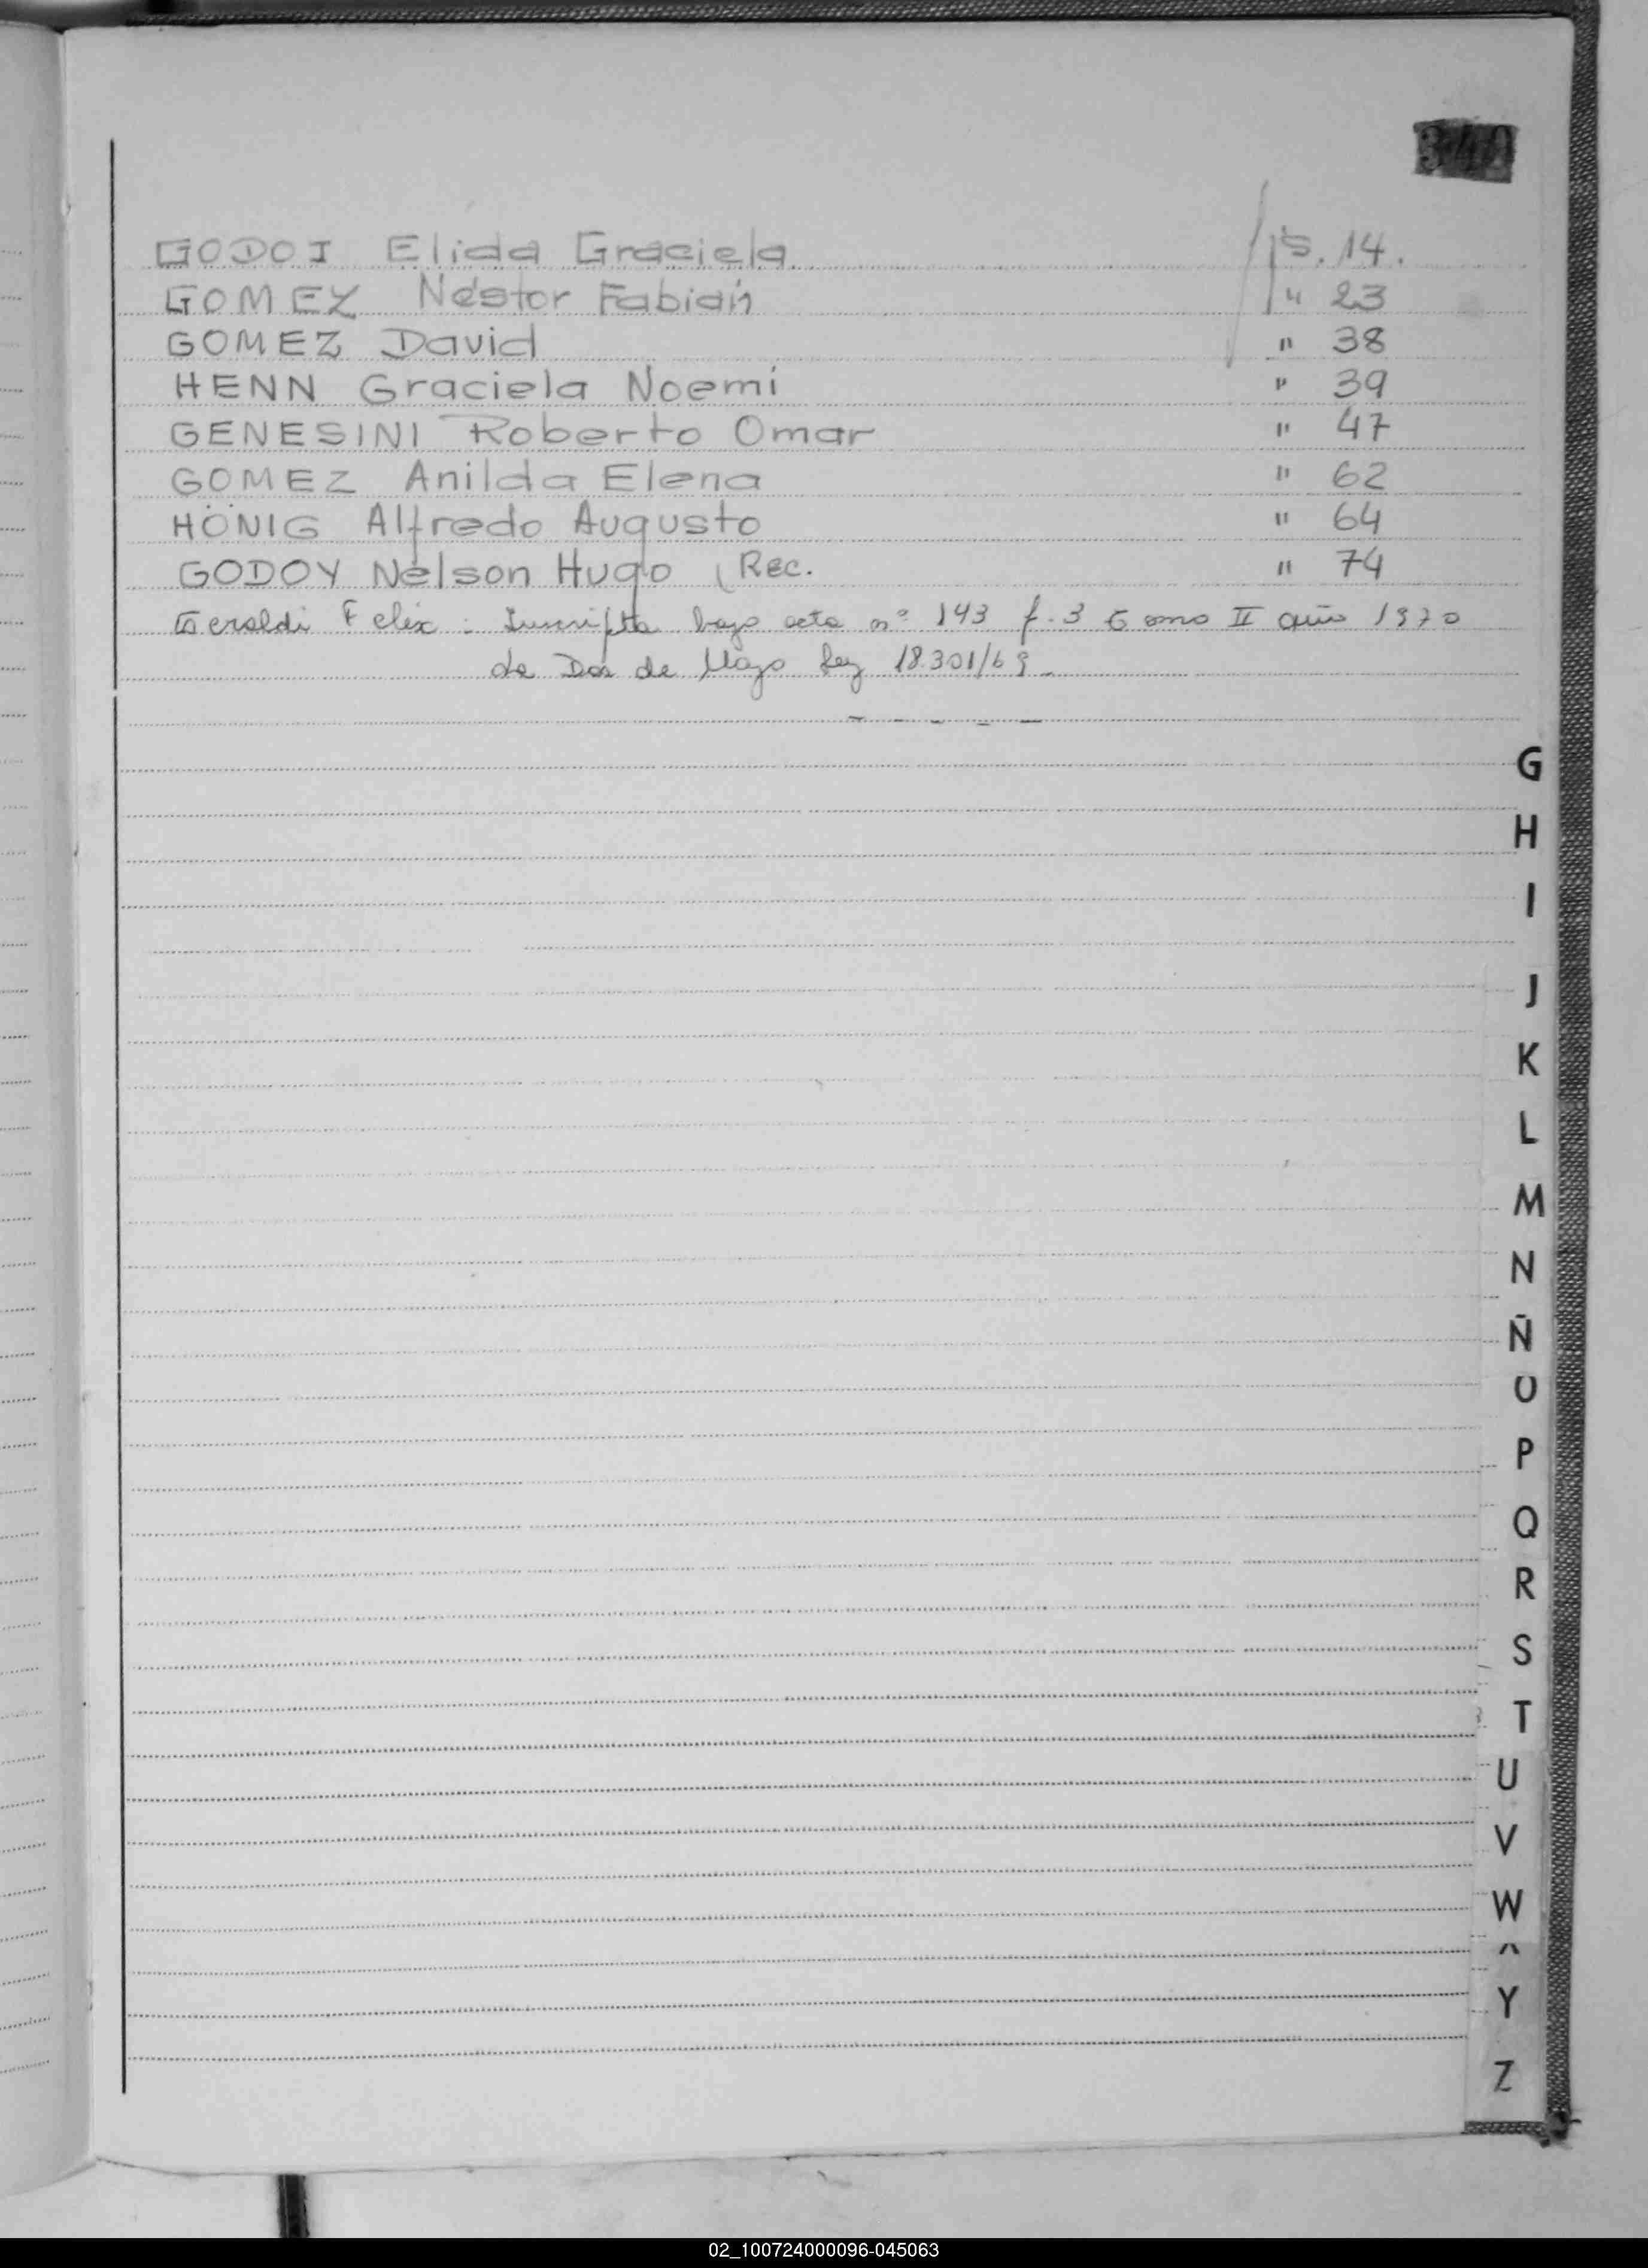 GODOI Elida Graciela fs. 14.
GOMEZ Néstor Fabián " 23
GOMEZ David " 38
HENN Graciela Noemí " 39
GENESINI Roberto Omar " 47
GOMEZ Anilda Elena " 62
HÖNIG Alfredo Augusto " 64
GODOY Nelson Hugo (Rec. " 74
Geraldi Felix: Inscripta bajo acta nº 143 f. 3 Tomo II año 1970
de Dos de Mayo Ley 18.301/69
G
H
I
J
K
L
M
N
Ñ
O
P
Q
R
S
T
U
V
W
Y
Z
02_100724000096-045063